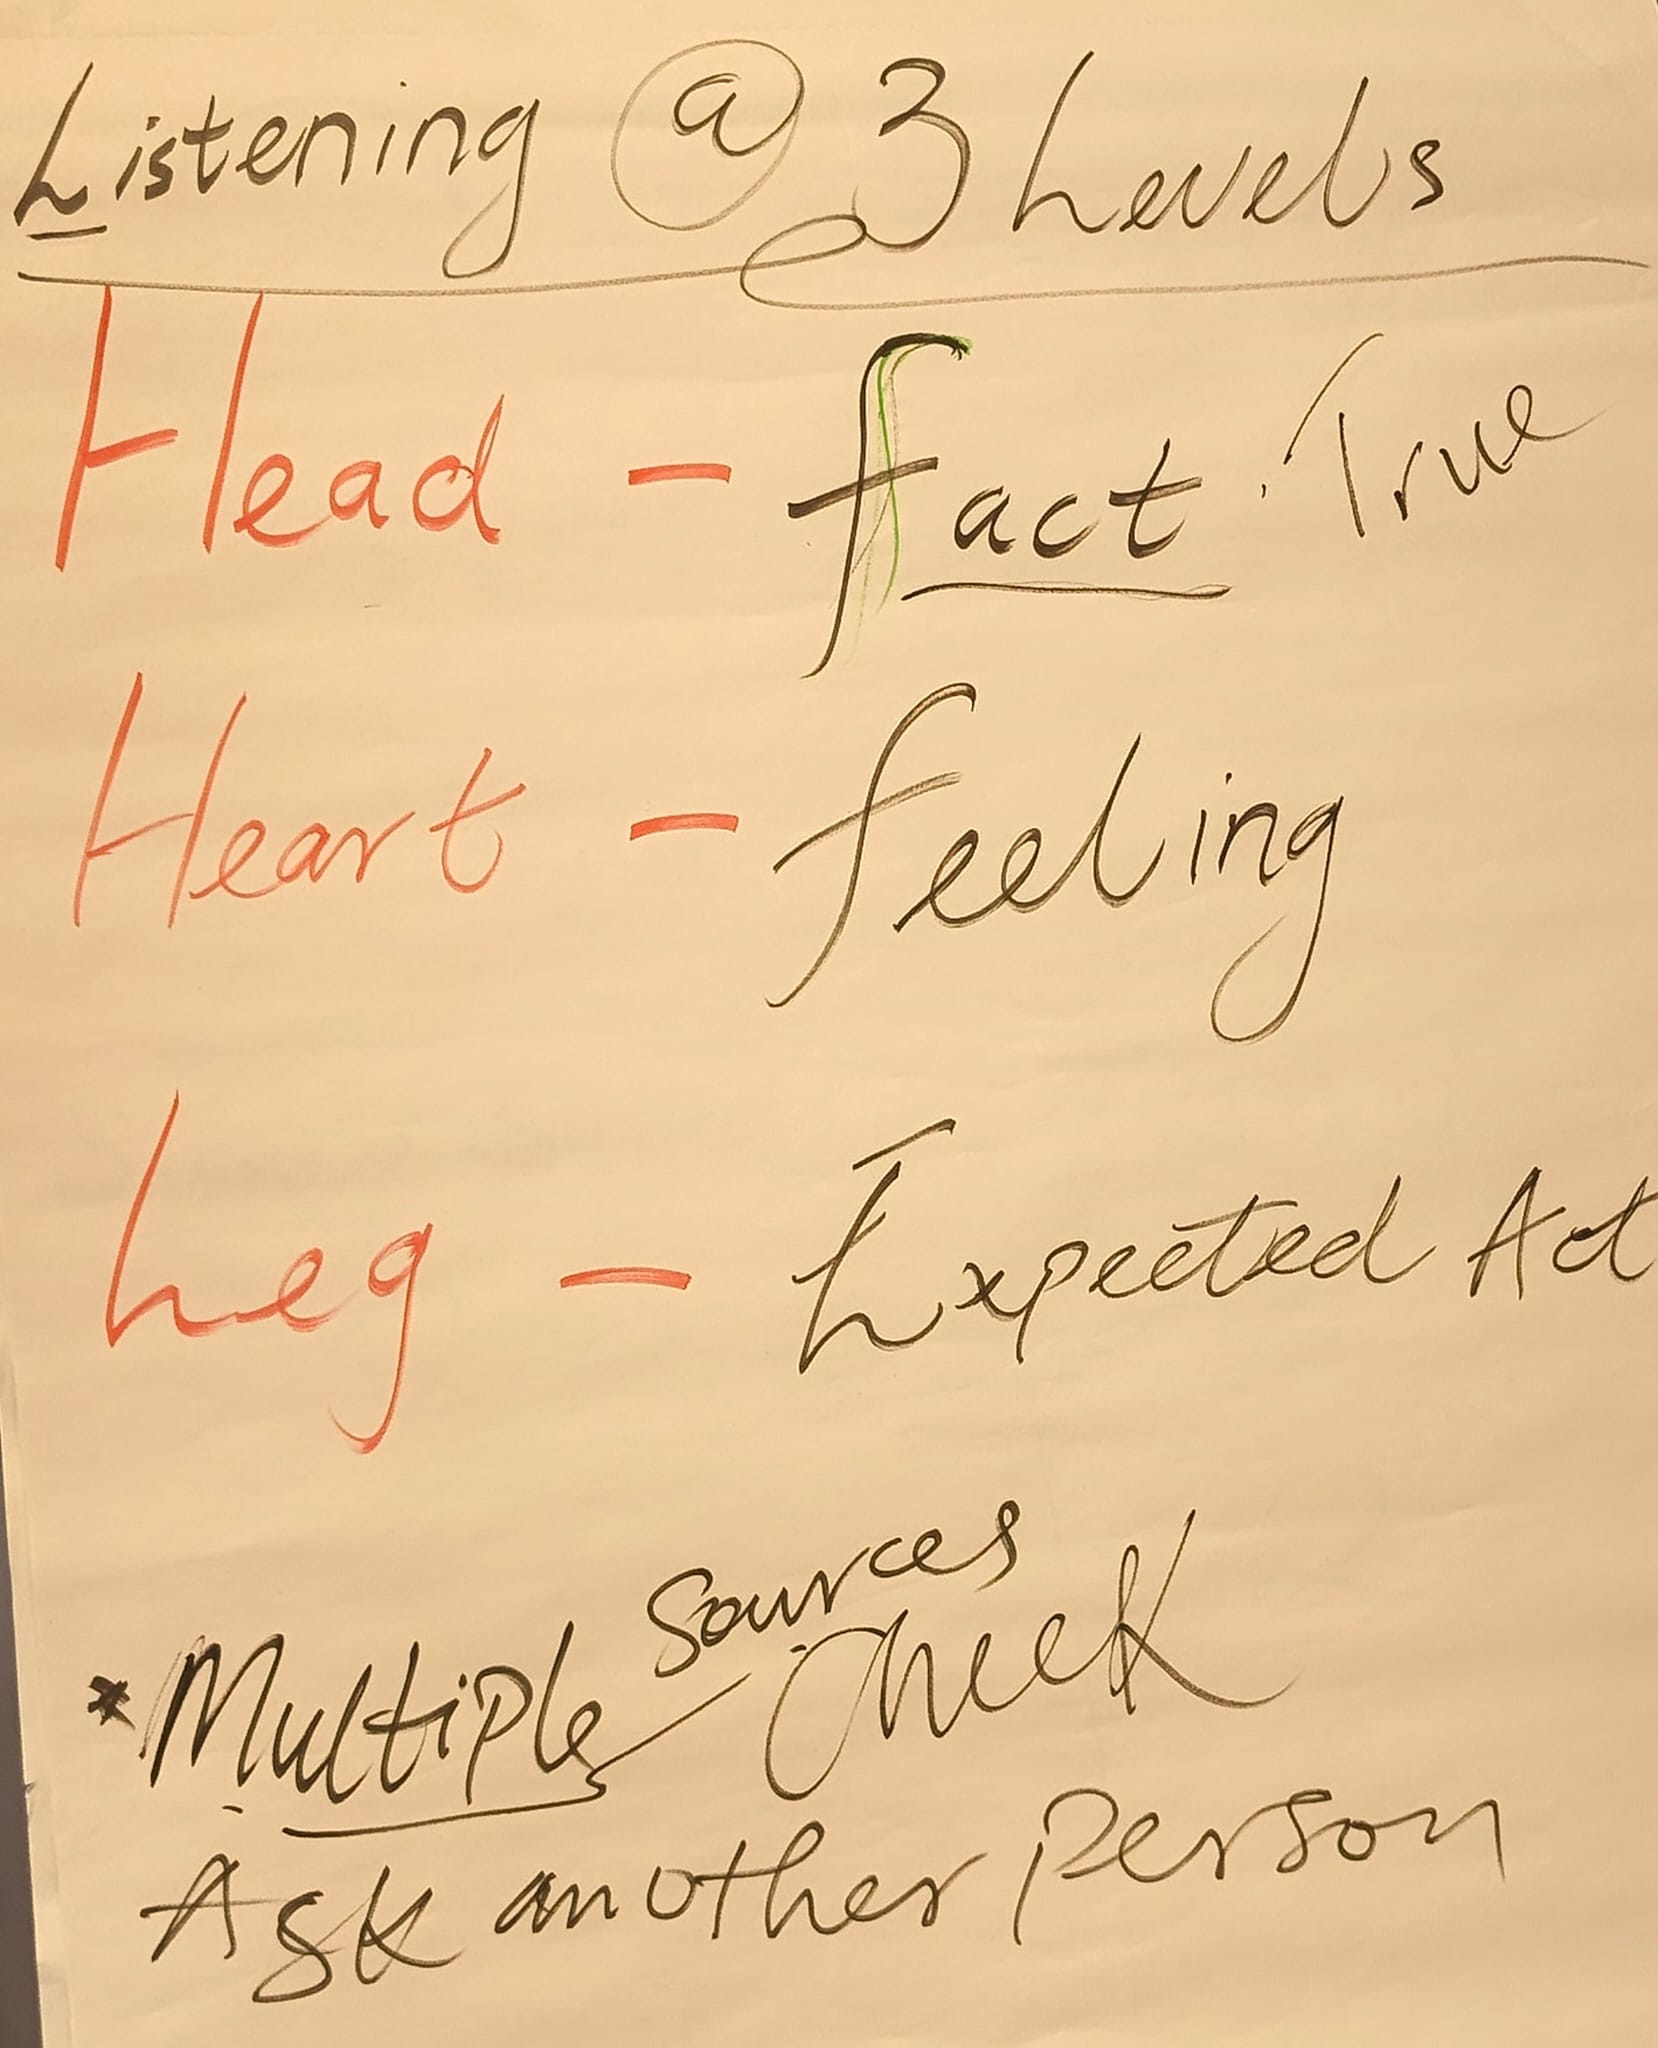 Listening @ 3 Levels
Head - Fact. True
Heart - feeling
Leg - Expected Act
* Multiple Sources Check
Ask another person